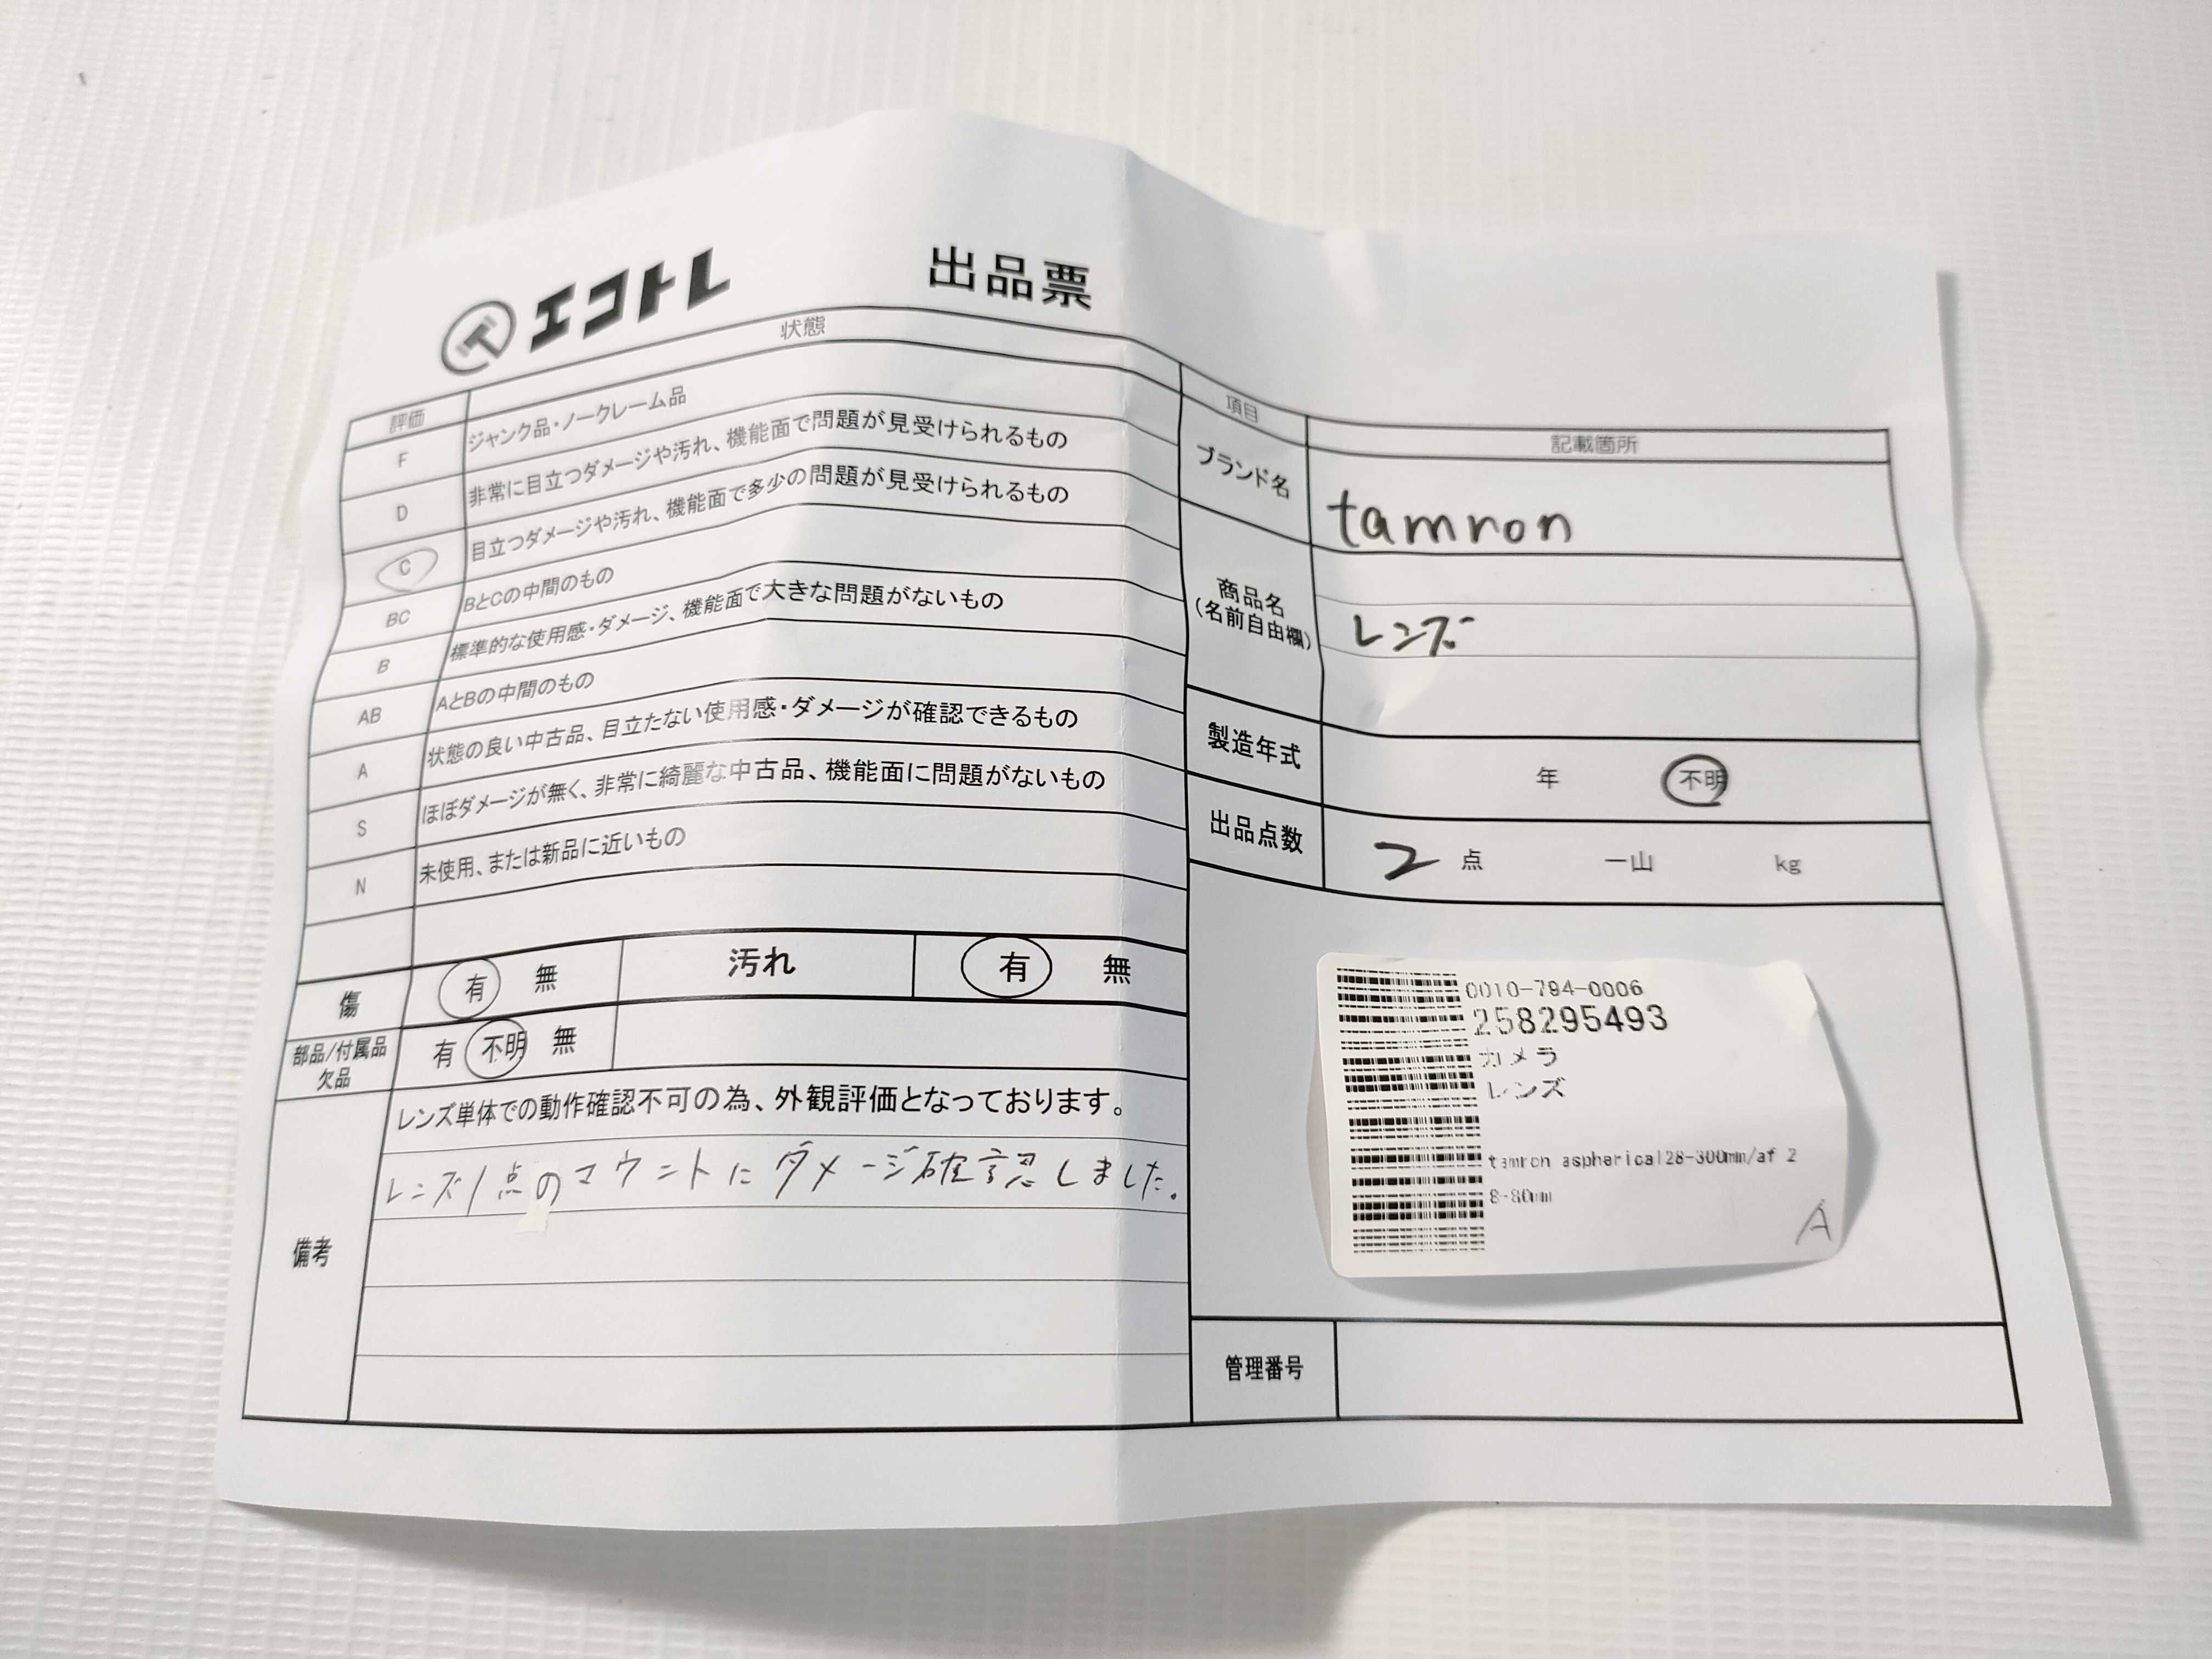 エコトレ
出品票
評価 状態
F ジャンク品・ノークレーム品
D 非常に目立つダメージや汚れ、機能面で問題が見受けられるもの
C 目立つダメージや汚れ、機能面で多少の問題が見受けられるもの
BC BとCの中間のもの
B 標準的な使用感・ダメージ、機能面で大きな問題がないもの
AB AとBの中間のもの
A 状態の良い中古品、目立たない使用感・ダメージが確認できるもの
S ほぼダメージが無く、非常に綺麗な中古品、機能面に問題がないもの
N 未使用、または新品に近いもの
傷 有 無 汚れ 有 無
部品/付属品
欠品 有 不明 無
備考
レンズ単体での動作確認不可の為、外観評価となっております。
レンズ1点のマウントにダメージ確認しました。
項目 記載箇所
ブランド名 tamron
商品名
(名前自由欄)
レンズ
製造年式 年 不明
出品点数 2 点 一山 kg
0010-794-0006
258295493
カメラ
レンズ
tamron aspherical28-300mm/af 2
8-80mm
A
管理番号